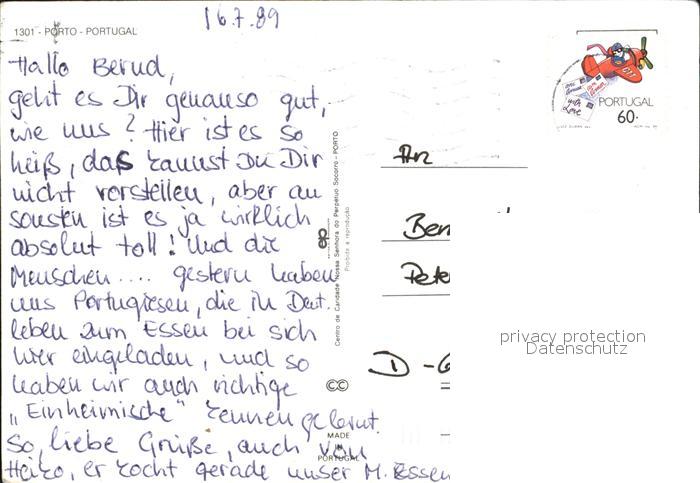 16.7.89
1301 - PORTO - PORTUGAL
Hallo Bernd,
geht es Dir genauso gut,
wie uns? Hier ist es so
heiß, daß kannst Du Dir
nicht vorstellen, aber an
sonsten ist es ja wirklich
absolut toll! Und die
Menschen.... gestern haben
uns Portugiesen, die in Deut.
leben zum Essen bei sich
hier eingeladen, und so
haben wir auch richtige
„Einheimische" kennengelernt.
So, liebe Grüße, auch von
Heiko, er kocht gerade unser M.Essen
Centro de Caridade Nossa Senhora do Perpétuo Socorro - PORTO
Proibida a reprodução
MADE
IN
PORTUGAL
PORTUGAL
60.
with
Love
An
Ber
Pete
D -
privacy protection
Datenschutz